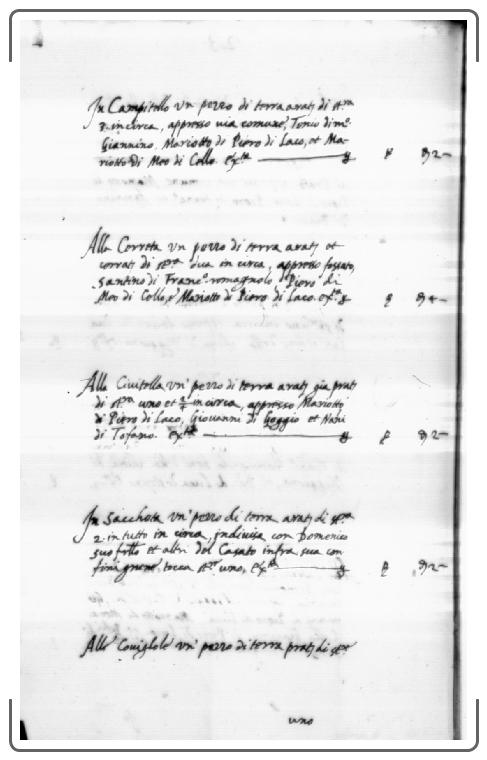 In Campitello un pezzo di terra arat; di st.ra
in circa, appresso via comune, Tonio di m.o
Giannino, Mariotto di Piero di Laco, et Ma-
riotto di Meo di Collo.
Alla Correta un pezzo di terra arat; et
di st.ra dua in circa, appresso fossato,
Santino di Franc.o romagnolo Piero di
Meo di Collo, e Mariotto di Piero di Laco.
Alla Civitella un' pezzo di terra arat; già prat;
di st.ra uno et in circa, appresso Mariotto
di Piero di Laco, Giovanni di Goggio et Nani
di Tofano.
In Sacchota un' pezzo di terra arat; di st.ra
2 in tutto in circa, indivisa con Domenico
suo fr.llo et altri del Casato infra sua con
fini, tocca st.ro uno,
Alle Coviglole un' pezzo di terra prat; di st.ro
uno